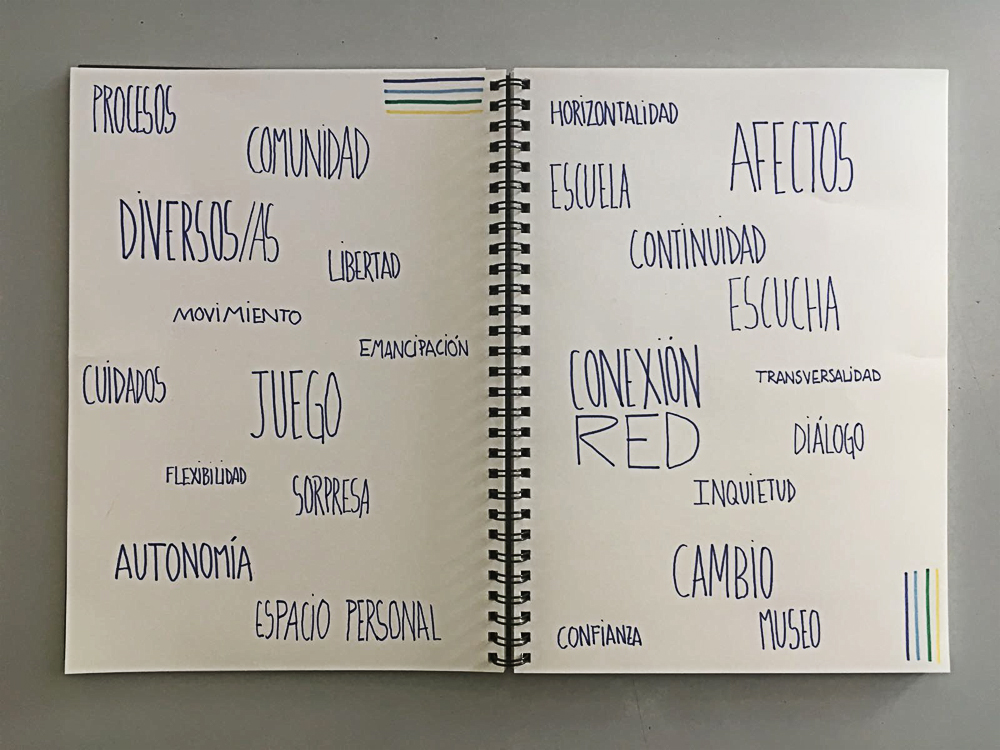 PROCESOS
COMUNIDAD
DIVERSOS/AS
LIBERTAD
MOVIMIENTO
EMANCIPACIÓN
CUIDADOS
JUEGO
FLEXIBILIDAD
SORPRESA
AUTONOMÍA
ESPACIO PERSONAL
HORIZONTALIDAD
AFECTOS
ESCUELA
CONTINUIDAD
ESCUCHA
CONEXIÓN
TRANSVERSALIDAD
RED
DIÁLOGO
INQUIETUD
CAMBIO
MUSEO
CONFIANZA